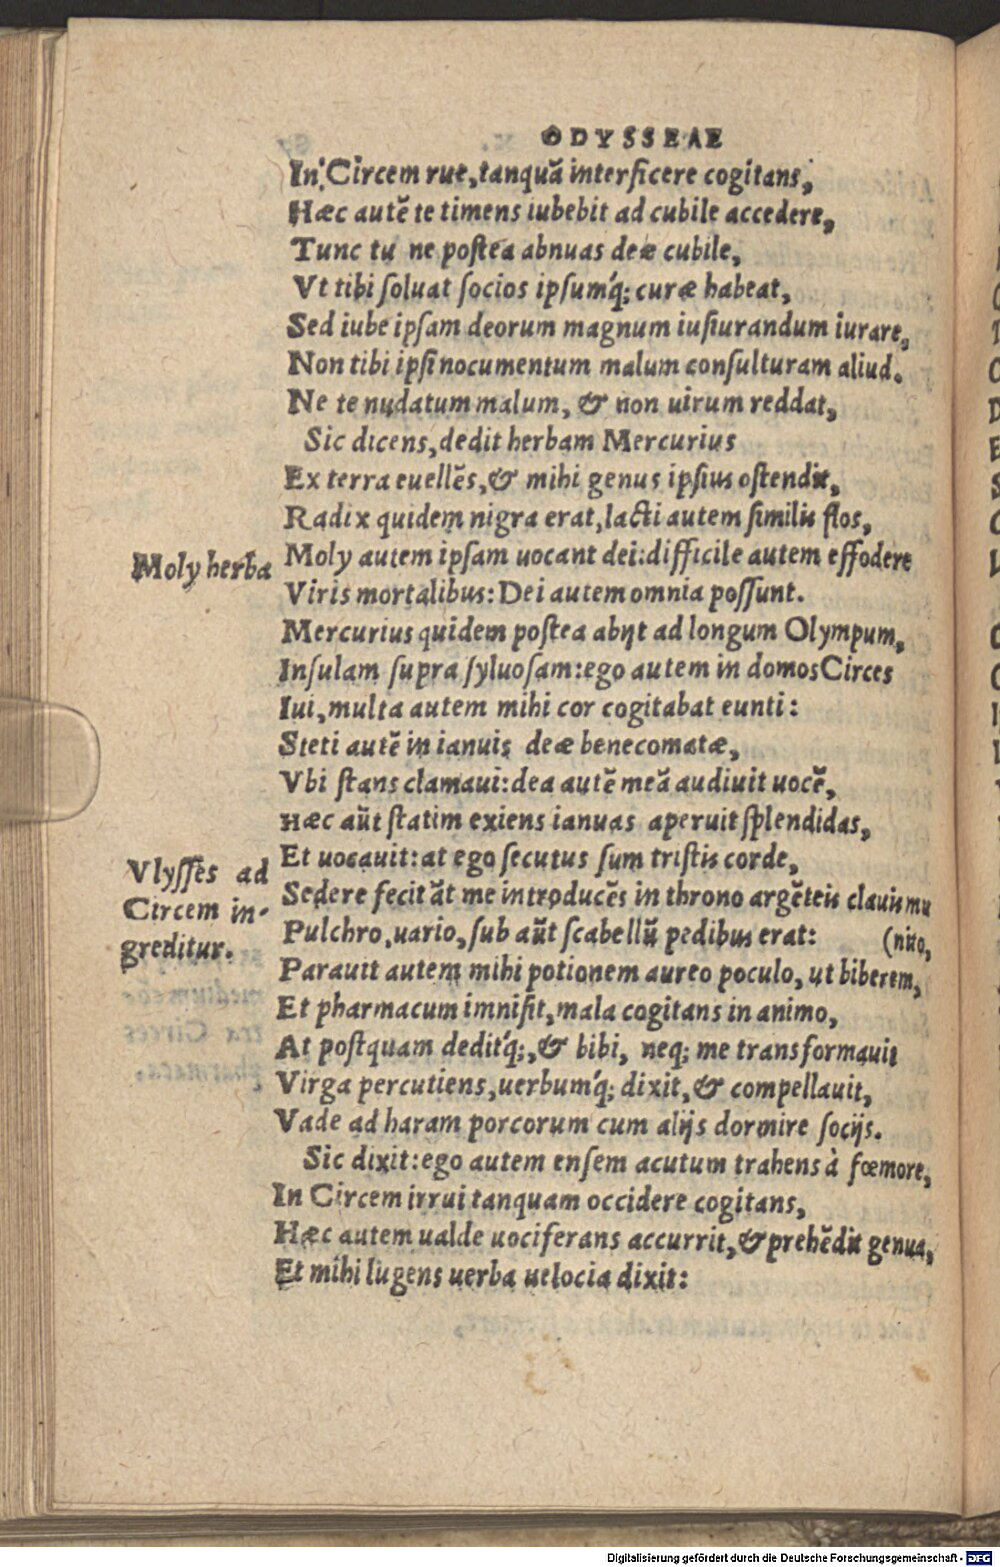 ODYSSEAE
In Circem rue, tanquã interficere cogitans,
Hæc autẽ te timens iubebit ad cubile accedere,
Tunc tu ne postea abnuas deæ cubile,
Vt tibi soluat socios ipsumq́; curæ habeat,
Sed iube ipsam deorum magnum iusiurandum iurare,
Non tibi ipsi nocumentum malum consulturam aliud.
Ne te nudatum malum, & non uirum reddat,
Sic dicens, dedit herbam Mercurius
Ex terra euellẽs, & mihi genus ipsius ostendit,
Radix quidem nigra erat, lacti autem similis flos,
Moly herba
Moly autem ipsam uocant dei: difficile autem effodere
Viris mortalibus: Dei autem omnia possunt.
Mercurius quidem postea abijt ad longum Olympum,
Insulam supra syluosam: ego autem in domos Circes
Iui, multa autem mihi cor cogitabat eunti:
Steti autẽ in ianuis deæ benecomatæ,
Vbi stans clamaui: dea autẽ meã audiuit uocẽ,
Hæc aũt statim exiens ianuas aperuit splendidas,
Et uocauit: at ego secutus sum tristis corde,
Vlysses ad
Circem in-
greditur.
Sedere fecit ãt me introducẽs in throno argẽteis clauis mu
Pulchro, uario, sub aũt scabellũ pedibus erat: (nito,
Parauit autem mihi potionem aureo poculo, ut biberem,
Et pharmacum immisit, mala cogitans in animo,
At postquam deditq́;, & bibi, neq; me transformauit
Virga percutiens, uerbumq́; dixit, & compellauit,
Vade ad haram porcorum cum alijs dormire socijs.
Sic dixit: ego autem ensem acutum trahens à fœmore,
In Circem irrui tanquam occidere cogitans,
Hæc autem ualde uociferans accurrit, & prehẽdit genua,
Et mihi lugens uerba uelocia dixit:
Digitalisierung gefördert durch die Deutsche Forschungsgemeinschaft - DFG